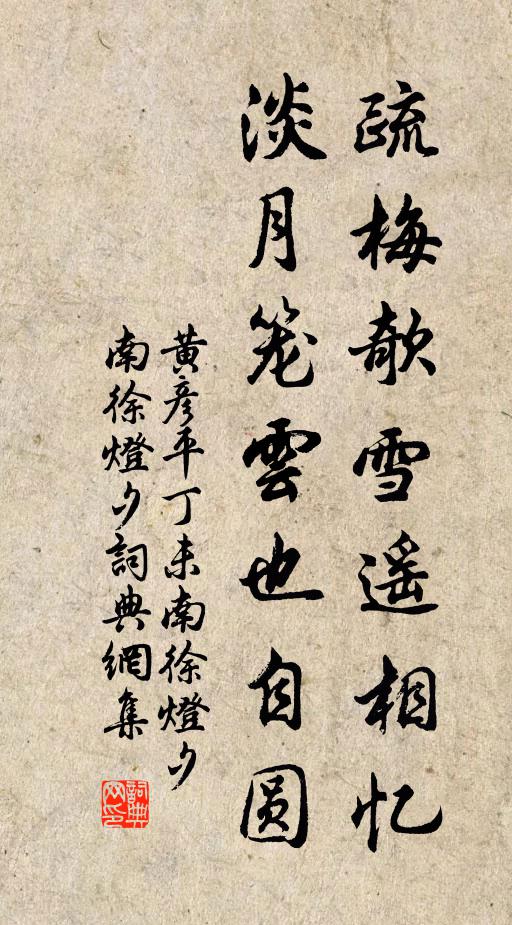 疏梅欹雪遥相忆
淡月笼雲也自圆
黄彦平丁未南徐燈夕
南徐燈夕詞典網集
詞典网印